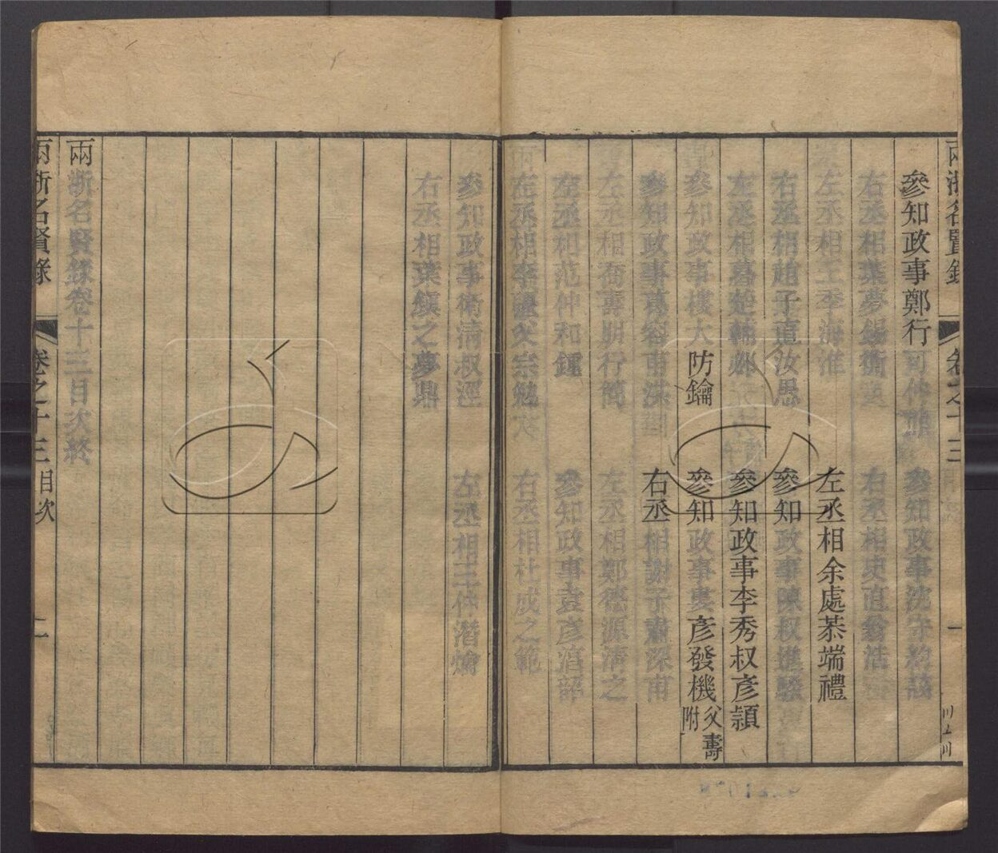 參知政事鄭行可仲熊 參知政事沈守約該
右丞相葉夢錫衡 右丞相史直翁浩
左丞相王季海淮 左丞相余處恭端禮
右丞相趙子直汝愚 參知政事陳叔進騤
左丞相葛楚輔邲 參知政事李秀叔彥穎
參知政事樓大防鑰 參知政事婁彥發機父壽附
參知政事葛容甫洪 右丞相謝子肅深甫
左丞相喬壽朋行簡 左丞相鄭德源清之
左丞相范仲和鍾 參知政事袁彥淳韶
左丞相李 宗勉 右丞相杜成之範
參知政事衛清叔涇 左丞相王仲潛爚
右丞相葉鎮之夢鼎
兩浙名賢錄卷十三目次終
兩浙名賢錄 卷之十三目次 二